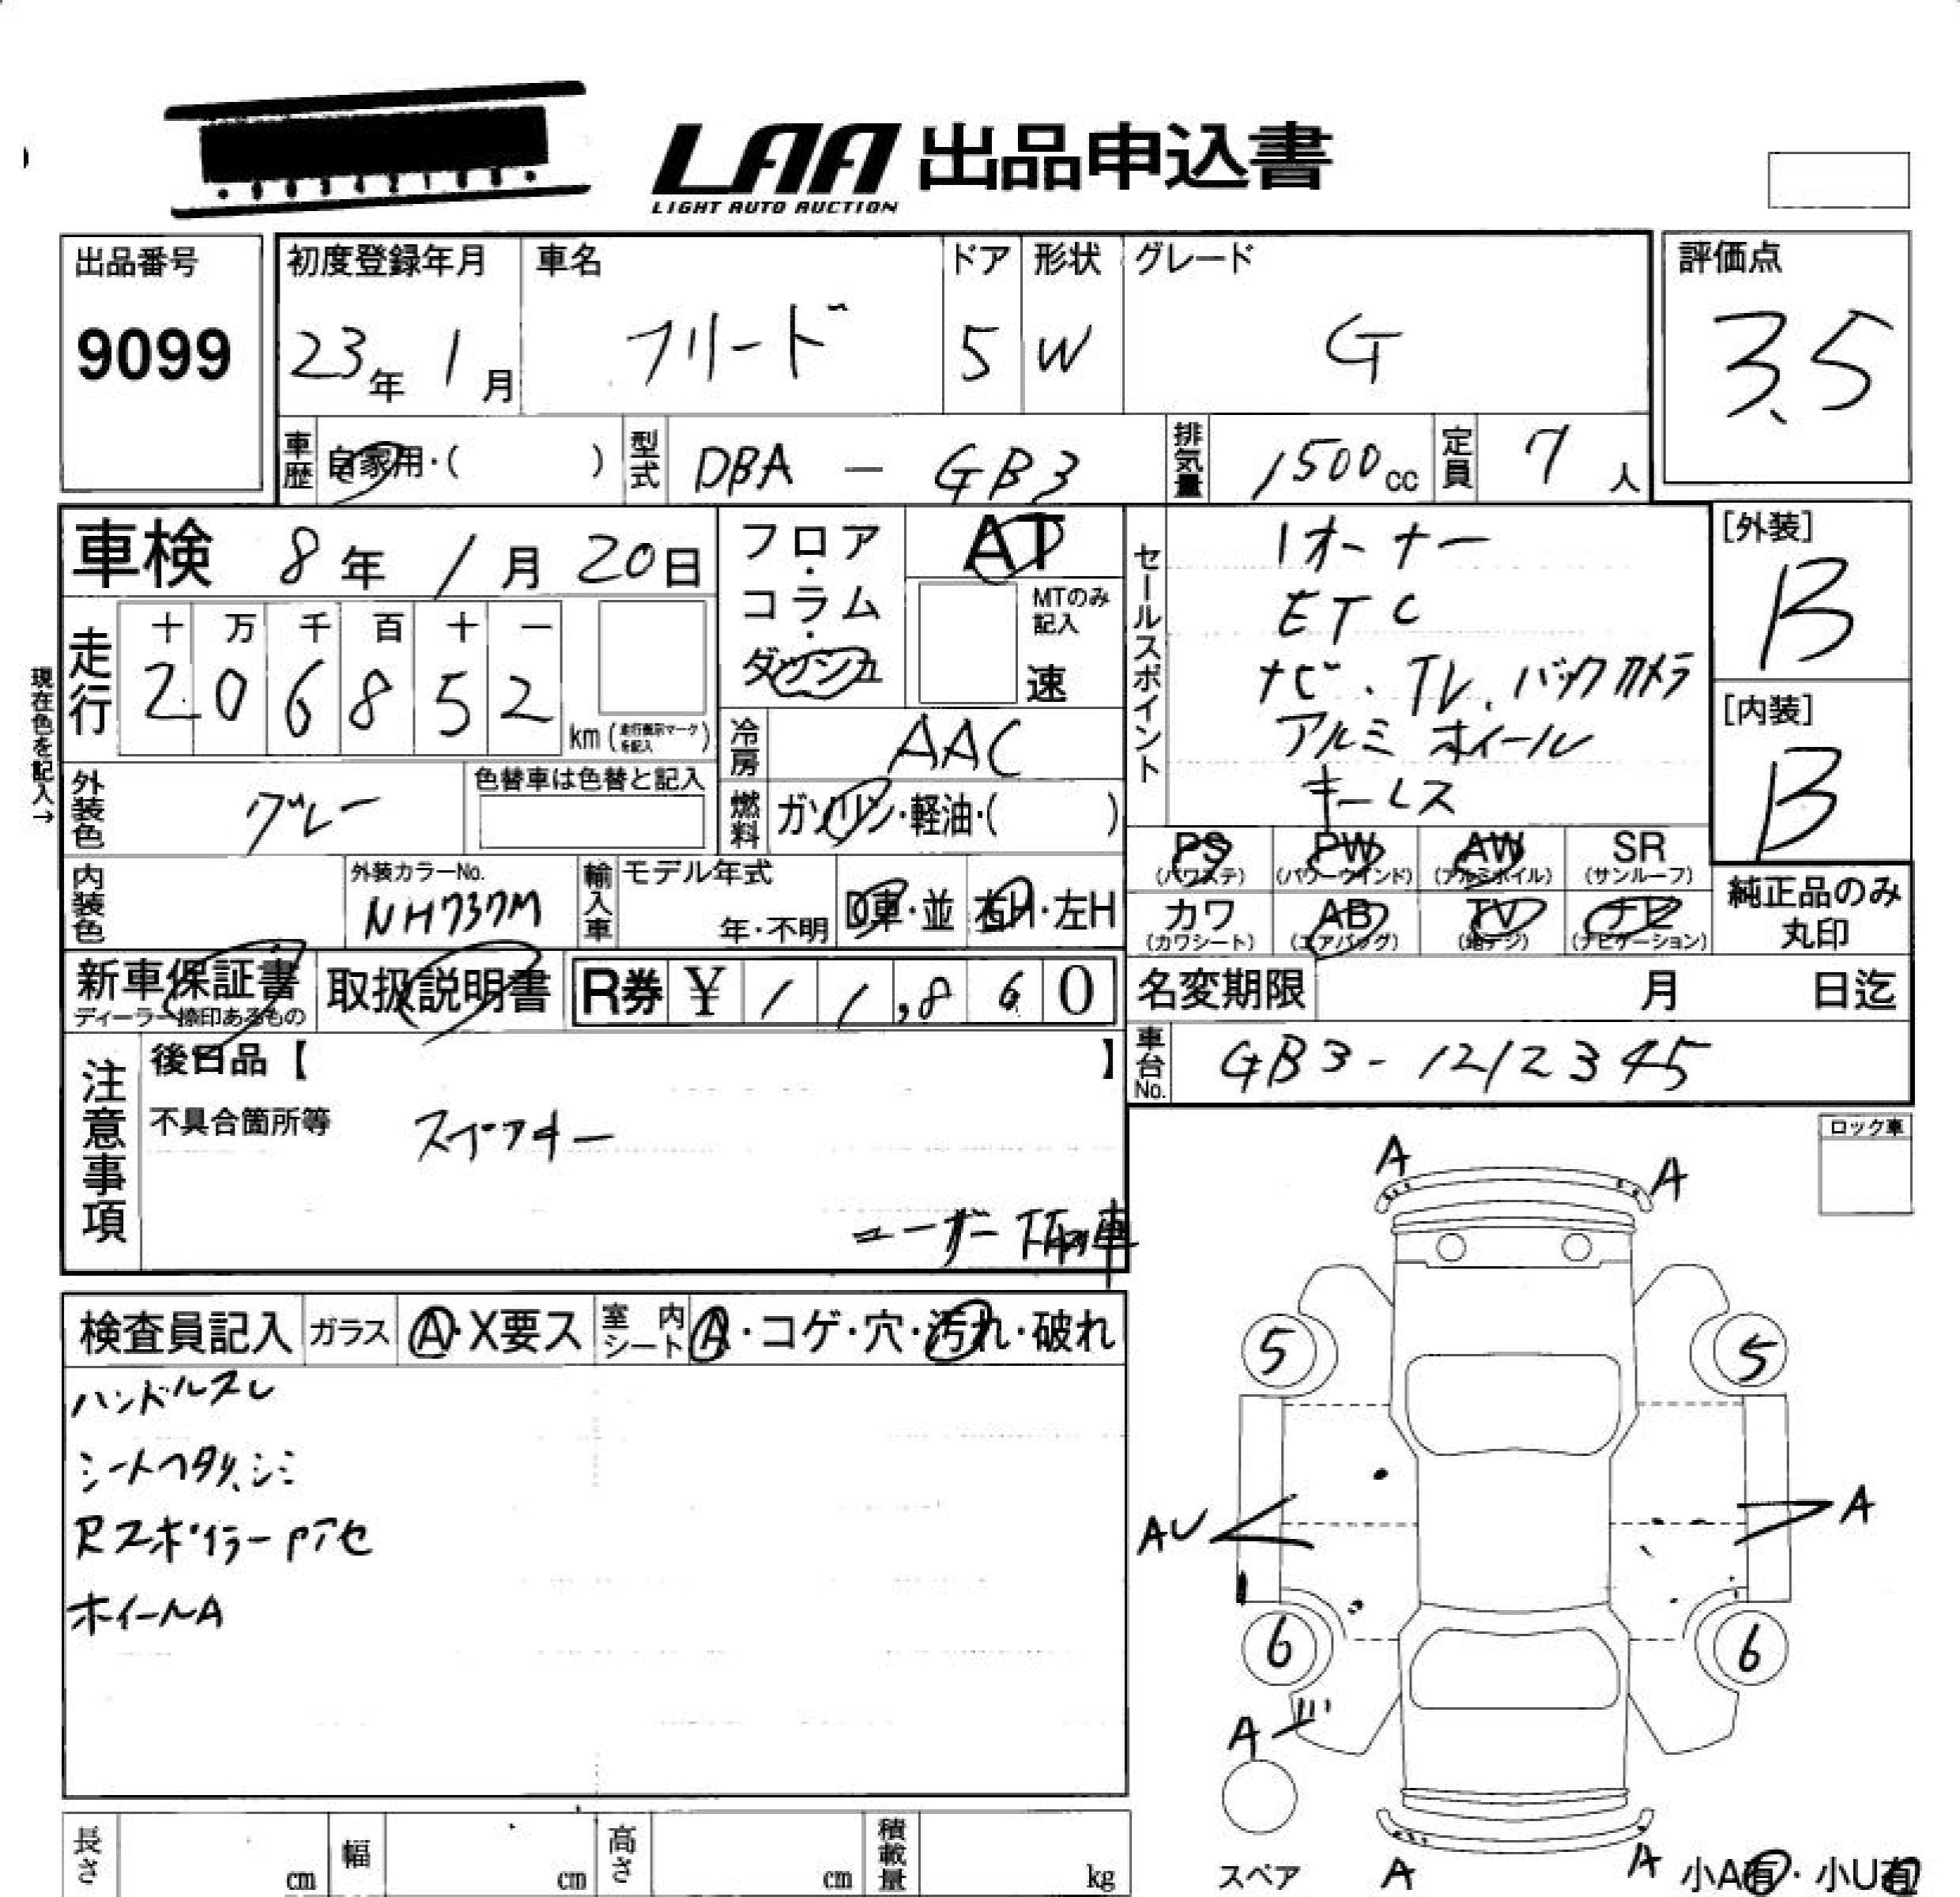 LAA 出品申込書
LIGHT AUTO AUCTION
出品番号
9099
初度登録年月
23年 1月
車名
フリード
ドア
5
形状
W
グレード
G
評価点
3.5
車歴
自家用・( )
型式
DBA - GB3
排気量
1500cc
定員
7人
車検 8年 1月 20日
現在色を記入→
走行
十 万 千 百 十 一
2 0 6 8 5 2
km (走行表示マークを記入)
フロア・コラム・ダッシュ
AT
MTのみ記入
速
冷房
AAC
燃料
ガソリン・軽油・( )
外装色
グレー
色替車は色替と記入
内装色
外装カラーNo.
NH737M
輸入車
モデル年式
年・不明
D車・並
右H・左H
セールスポイント
1オーナー
ETC
ナビ.TV.バックカメラ
アルミホイール
キーレス
[外装]
B
[内装]
B
PS (パワステ)
PW (パワーウインド)
AW (アルミホイル)
SR (サンルーフ)
カワ (カワシート)
AB (エアバッグ)
TV (地デジ)
ナビ (ナビゲーション)
純正品のみ丸印
新車保証書
ディーラー捺印あるもの
取扱説明書
R券 ¥ 11,860
名変期限 月 日迄
車台No.
GB3-1212345
注意事項
後日品【 】
不具合箇所等
スペアキー
ユーザー下取車
ロック車
検査員記入
ガラス
A・X要ス
室内シート
A・コゲ・穴・汚れ・破れ
ハンドルスレ
シートヘタリ、シミ
Rスポイラーpアセ
ホイールA
A
A
5
5
AU
A
6
6
A
スペア
A
A
小A有・小U有
長さ cm
幅 cm
高さ cm
積載量 kg